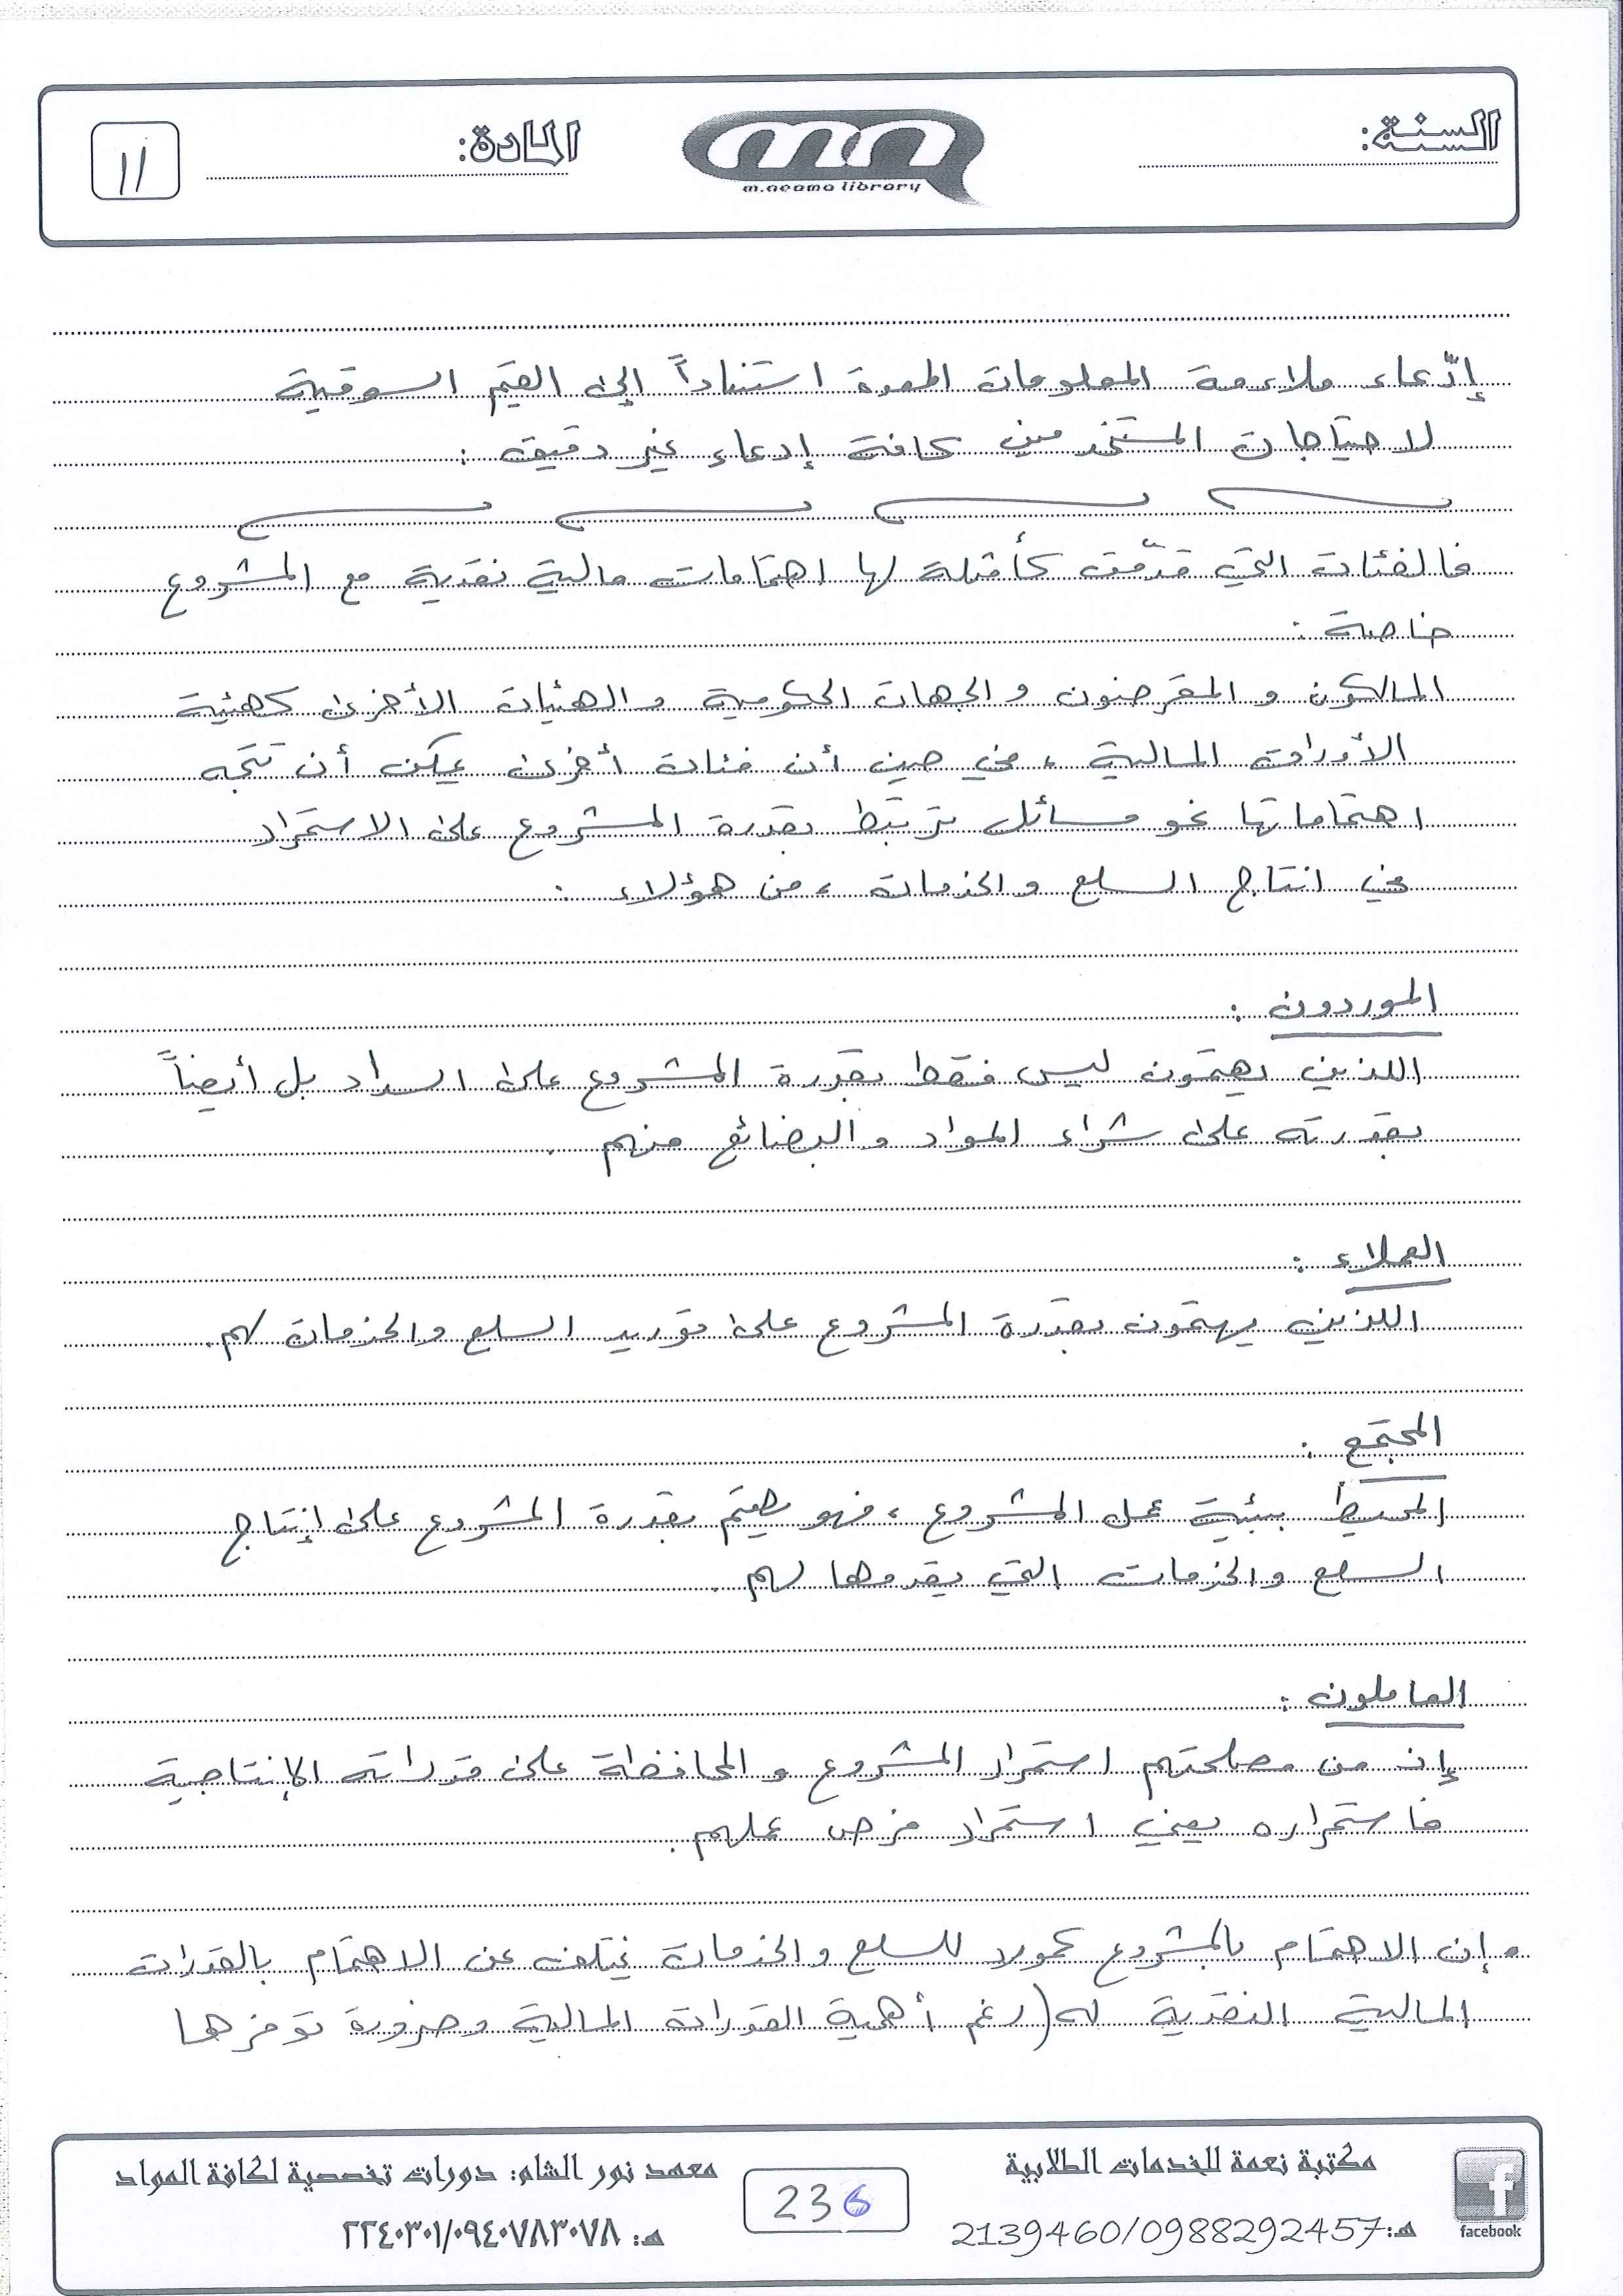 السنة:
m.neama library
المادة:
١١
إدّعاء ملاءمة المعلومات المعدة استناداً إلى القيم السوقية
لاحتياجات المستخدمين كافة إدعاء غير دقيق :
فالفئات التي قدّمت كأمثلة لها اهتمامات مالية نقدية مع المشروع
خاصة :
المالكون و المقرضون و الجهات الحكومية و الهيئات الأخرى كهيئة
الأوراق المالية ، في حين أن فئات أخرى يمكن أن تتجه
اهتماماتها نحو مسائل ترتبط بقدرة المشروع على الاستمرار
في انتاج السلع والخدمات ، من هؤلاء :
الموردون :
اللذين يهتمون ليس فقط بقدرة المشروع على السداد بل أيضاً
بقدرته على شراء المواد و البضائع منهم .
العملاء :
اللذين يهتمون بقدرة المشروع على توريد السلع والخدمات لهم .
المجتمع :
المحيط ببيئة عمل المشروع ، فهو يهتم بقدرة المشروع على إنتاج
السلع والخدمات التي يقدمها لهم .
العاملون :
إن من مصلحتهم استمرار المشروع و المحافظة على قدراته الإنتاجية
فاستمراره يعني استمرار فرص عملهم .
• إن الاهتمام بالمشروع كمورد للسلع والخدمات يختلف عن الاهتمام بالقدرات
المالية النقدية له (رغم أهمية القدرات المالية وضرورة توفرها
مكتبة نعمة للخدمات الطلابية
هـ: 2139460/0988292457
facebook
236
معهد نور الشام: دورات تخصصية لكافة المواد
هـ: ٢٢٤٠٣٠١/٠٩٤٠٧٨٣٠٧٨